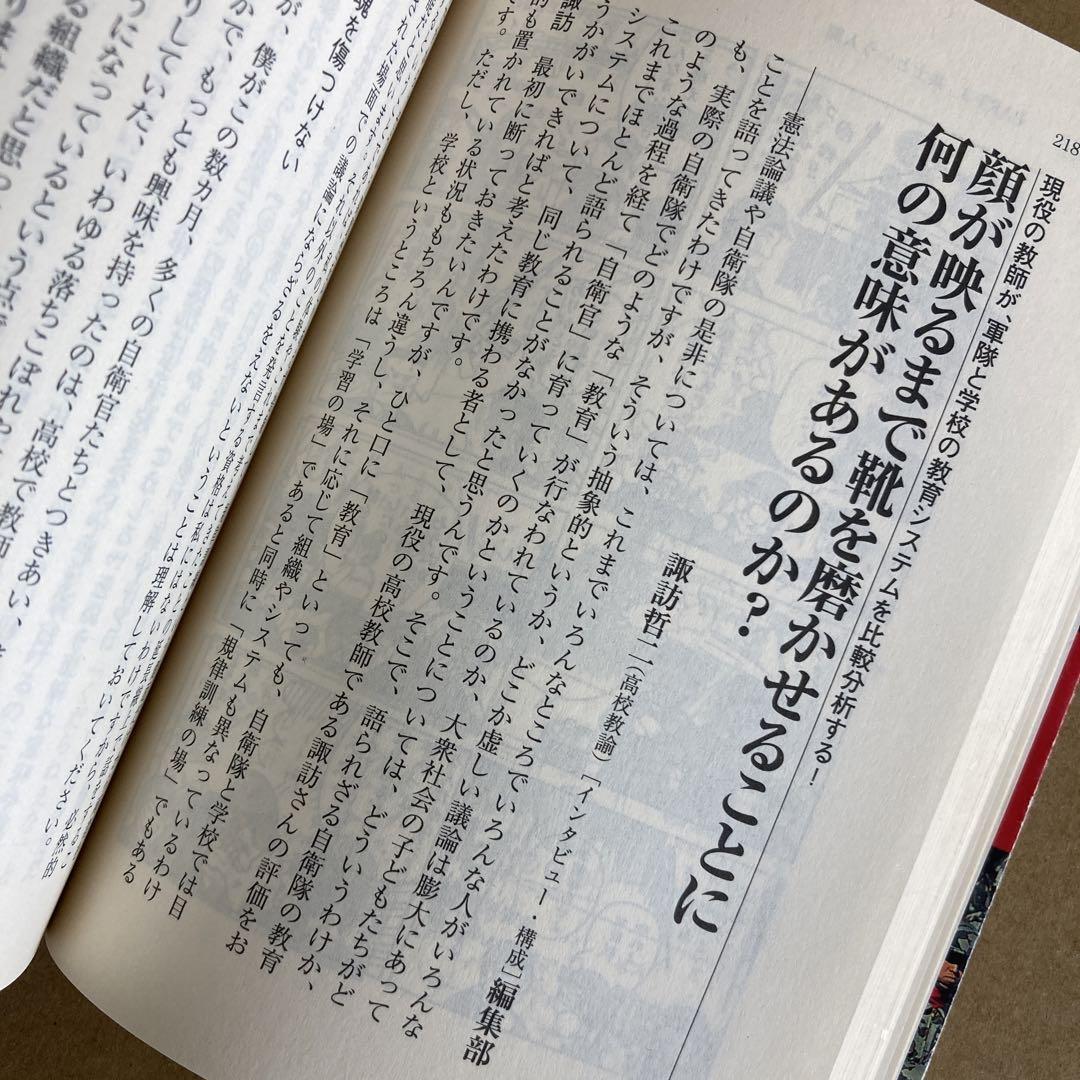 218
現役の教師が、軍隊と学校の教育システムを比較分析する！
顔が映るまで靴を磨かせることに
何の意味があるのか？
諏訪哲二（高校教諭）［インタビュー・構成］編集部
――憲法論議や自衛隊の是非については、これまでいろんなところでいろんな人がいろんな
ことを語ってきたわけですが、そういう抽象的というか、どこか虚しい議論は膨大にあって
も、実際の自衛隊でどのような「教育」が行なわれているのか、大衆社会の子どもたちがど
のような過程を経て「自衛官」に育っていくのかということについては、どういうわけか、
これまでほとんど語られることがなかったと思うんです。そこで、語られざる自衛隊の教育
システムについて、同じ教育に携わる者として、現役の高校教師である諏訪さんの評価をお
うかがいできればと考えたわけです。
諏訪　最初に断っておきたいんですが、ひと口に「教育」といっても、自衛隊と学校では目
的も置かれている状況ももちろん違うし、それに応じて組織やシステムも異なっているわけ
です。ただし、学校というところは「学習の場」であると同時に「規律訓練の場」でもある
された場面での議論にならざるをえないということは理解しておいてください。
魂を傷つけない
が、僕がこの数カ月、多くの自衛官たちとつきあい、
かで、もっとも興味を持ったのは、高校で教師
りしていた、いわゆる落ちこぼれ
うになっているという点で
る組織だと思っ